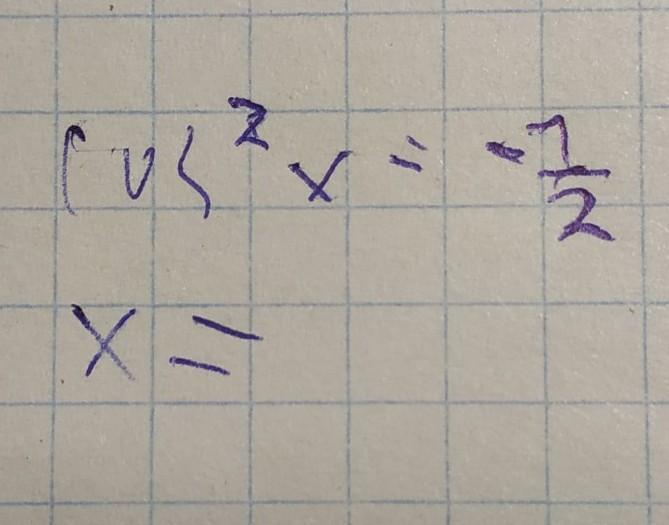 cos² x = -1/2
x =